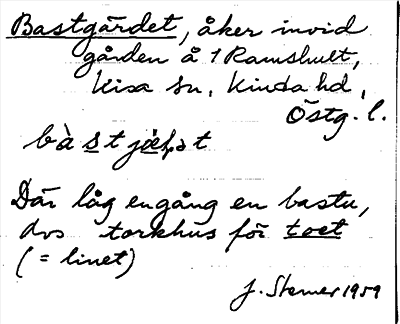 Bastgärdet, åker invid
gården å 1 Ramshult,
Kisa sn, Kinda hd,
Östg. l.
bàstjæ̣ḷət
Där låg engång en bastu,
dvs torkhus för toet
(= linet)
J. Sterner 1959